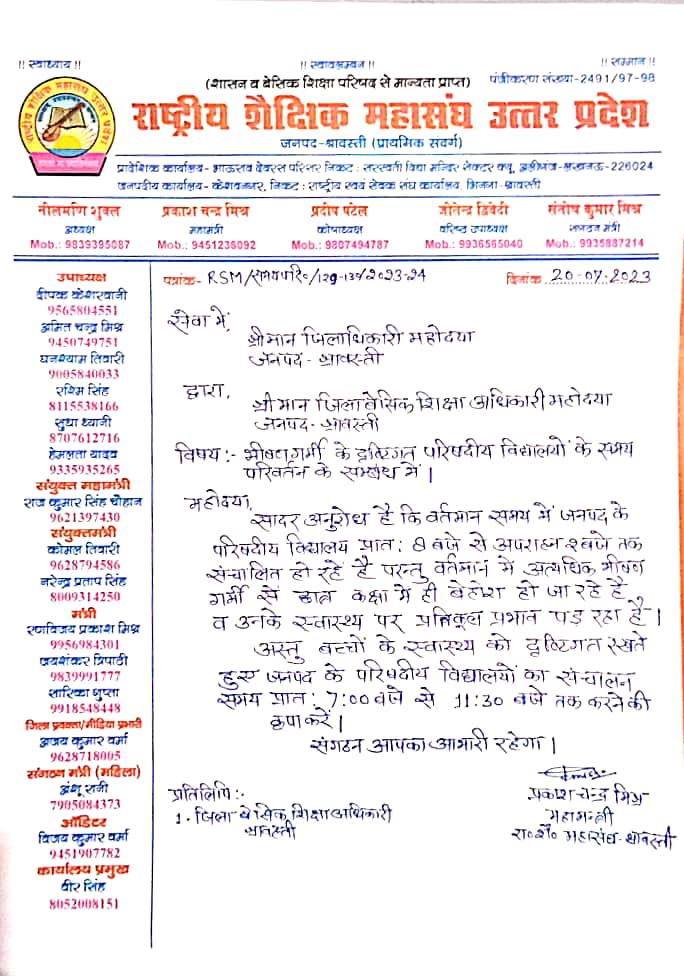 !! स्वाध्याय !!
!! स्वावलम्बन !!
!! सम्मान !!
(शासन व बेसिक शिक्षा परिषद से मान्यता प्राप्त)
पंजीकरण संख्या-2491/97-98
राष्ट्रीय शैक्षिक महासंघ उत्तर प्रदेश
जनपद-श्रावस्ती (प्राथमिक संवर्ग)
प्रादेशिक कार्यालय- भाऊराव देवरस परिसर निकट : सरस्वती विद्या मन्दिर सेक्टर क्यू, अलीगंज-लखनऊ-226024
जनपदीय कार्यालय- केशवनगर, निकट : राष्ट्रीय स्वयं सेवक संघ कार्यालय, भिनगा-श्रावस्ती
नीलमणि शुक्ल
अध्यक्ष
Mob.: 9839395087
प्रकाश चन्द्र मिश्र
महामंत्री
Mob.: 9451236092
प्रदीप पटेल
कोषाध्यक्ष
Mob.: 9807494787
जीतेन्द्र द्विवेदी
वरिष्ठ उपाध्यक्ष
Mob.: 9936565040
संतोष कुमार मिश्र
संगठन मंत्री
Mob.: 9935887214
उपाध्यक्ष
दीपक केशरवानी
9565804551
अमित चन्द्र मिश्र
9450749751
घनश्याम तिवारी
9005840033
रश्मि सिंह
8115538166
सुधा ध्यानी
8707612716
हेमलता यादव
9335935265
संयुक्त महामंत्री
राज कुमार सिंह चौहान
9621397430
संयुक्तमंत्री
कोमल तिवारी
9628794586
नरेन्द्र प्रताप सिंह
8009314250
मंत्री
रणविजय प्रकाश मिश्र
9956984301
जयशंकर त्रिपाठी
9839991777
शारिका गुप्ता
9918548448
जिला प्रवक्ता/मीडिया प्रभारी
अजय कुमार वर्मा
9628718005
संगठन मंत्री (महिला)
अंशू रानी
7905084373
ऑडिटर
विजय कुमार वर्मा
9451907782
कार्यालय प्रमुख
वीर सिंह
8052008151
पत्रांक- RSM/समयपरि०/129-130/2023-24
दिनांक 20-07-2023
सेवा में,
श्रीमान जिलाधिकारी महोदया
जनपद- श्रावस्ती
द्वारा,
श्रीमान जिला बेसिक शिक्षा अधिकारी महोदया
जनपद- श्रावस्ती
विषय:- भीषण गर्मी के दृष्टिगत परिषदीय विद्यालयों के समय
परिवर्तन के सम्बंध में।
महोदया,
सादर अनुरोध है कि वर्तमान समय में जनपद के
परिषदीय विद्यालय प्रात: 8 बजे से अपराह्न 2 बजे तक
संचालित हो रहे हैं परन्तु वर्तमान में अत्यधिक भीषण
गर्मी से छात्र कक्षा में ही बेहोश हो जा रहे हैं
व उनके स्वास्थ्य पर प्रतिकूल प्रभाव पड़ रहा है।
अस्तु बच्चों के स्वास्थ्य को दृष्टिगत रखते
हुए जनपद के परिषदीय विद्यालयों का संचालन
समय प्रात: 7:00 बजे से 11:30 बजे तक करने की
कृपा करें।
संगठन आपका आभारी रहेगा।
प्रकाश चन्द्र मिश्र
महामन्त्री
रा०शै० महासंघ-श्रावस्ती
प्रतिलिपि:-
1. जिला बेसिक शिक्षा अधिकारी
श्रावस्ती